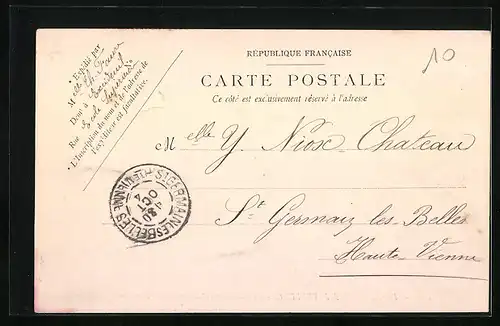 * Expédié par
M elle
Demt à Excideuil
Rue École Supérieure
* L'Inscription du nom et de l'adresse de
l'expéditeur est facultative.
RÉPUBLIQUE FRANÇAISE
10
CARTE POSTALE
Ce côté est exclusivement réservé à l'adresse
M elle Y. Niox-Chateau
St Germain les Belles
Haute Vienne
ST GERMAIN-LES-BELLES HTE VIENNE
OCT